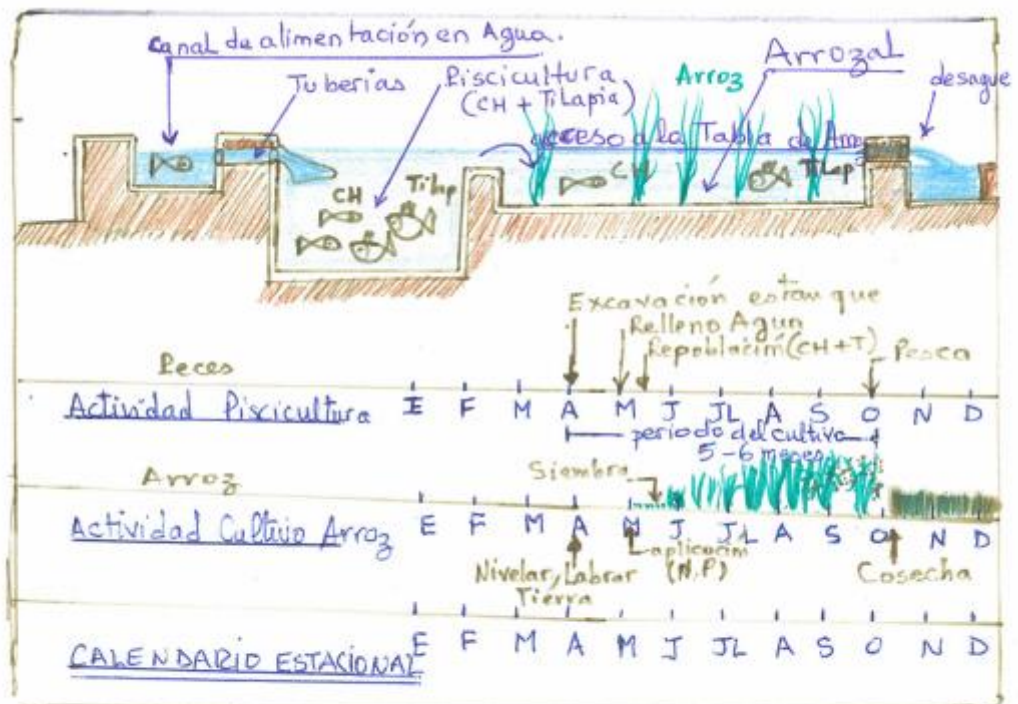 canal de alimentación en Agua.
Tuberias
Piscicultura
(CH + Tilapia)
Arroz
Arrozal
desague
acceso a la Tabla de
CH
Tilap
CH
Tilap
Excavación estanque
Relleno Agua
Repoblación (CH+T)
Pesca
Peces
Actividad Piscicultura E F M A M J JL A S O N D
periodo del cultivo
5-6 meses
Siembra
Arroz
Actividad Cultivo Arroz E F M A M J JL A S O N D
aplicación
(N,P)
Nivelar, Labrar
Tierra
Cosecha
CALENDARIO ESTACIONAL E F M A M J JL A S O N D